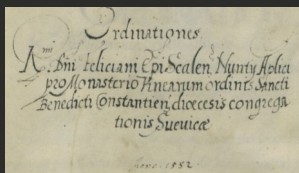 Ordinationes.
R.mi Dni Feliciani Epi Scalen, Nuntÿ Aplici
pro Monasterio Vnearum ordinis Sancti
Benedicti Constantien, dioecesis congrega
tionis Suevicæ
1582.